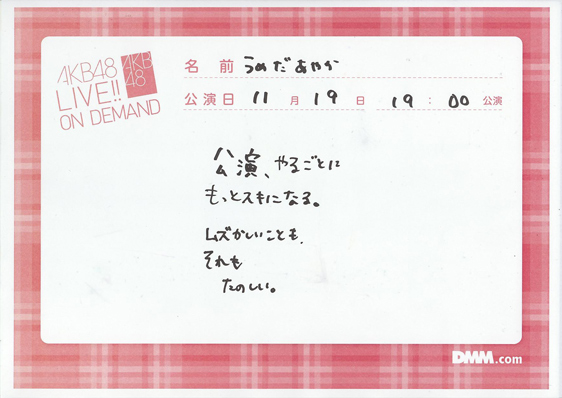 AKB48
LIVE!!
ON DEMAND
AKB
48
名 前 うめだあやか
公演日 11 月 19 日 19 : 00 公演
公演、やるごとに
もっとスキになる。
ムズかしいことも、
それも
たのしい。
DMM.com